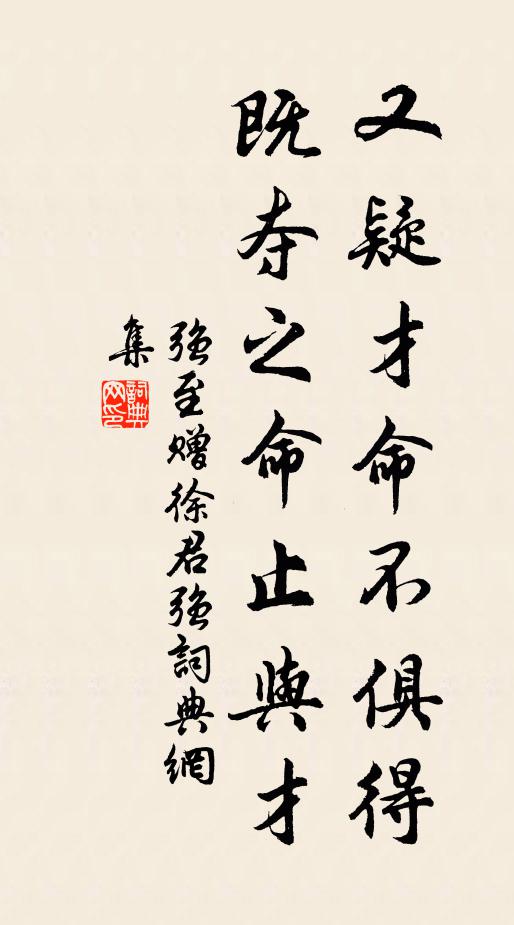 又疑才命不俱得
既夺之命止與才
强至赠徐君强詞典網
集
詞典网印